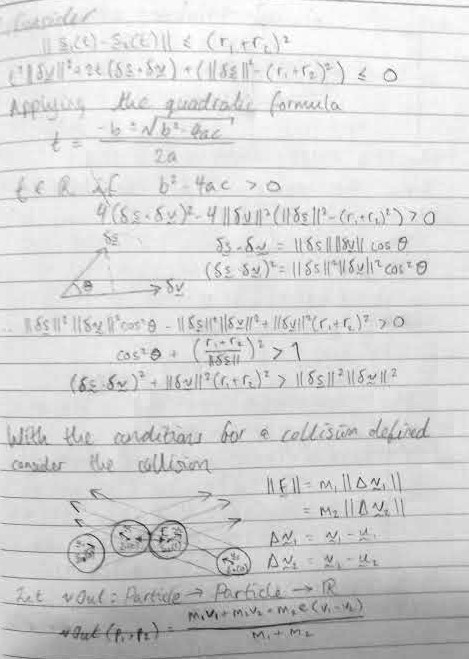 Consider
|| s₁(t) - s₂(t) || ≤ (r₁+r₂)²
t²||δv||² + 2t (δs·δv) + (||δs||² - (r₁+r₂)²) ≤ 0
Applying the quadratic formula
t = -b ± √b² - 4ac / 2a
t ∈ ℝ if b² - 4ac > 0
4(δs·δv)² - 4||δv||²(||δs||² - (r₁+r₂)²) > 0
δs
δs·δv = ||δs|| ||δv|| cos θ
(δs·δv)² = ||δs||²||δv||² cos² θ
θ
δv
||δs||²||δv||²cos²θ - ||δs||²||δv||² + ||δv||²(r₁+r₂)² > 0
cos²θ + (r₁+r₂ / ||δs||)² > 1
(δs·δv)² + ||δv||²(r₁+r₂)² > ||δs||²||δv||²
With the conditions for a collision defined
consider the collision
||F|| = m₁ ||Δv₁||
= m₂ ||Δv₂||
Δv₁ = v₁ - u₁
Δv₂ = v₂ - u₂
Let vOut : Particle → Particle → ℝ
vOut (p₁, p₂) = m₁v₁ + m₂v₂ - m₂e(v₁ - v₂) / m₁ + m₂